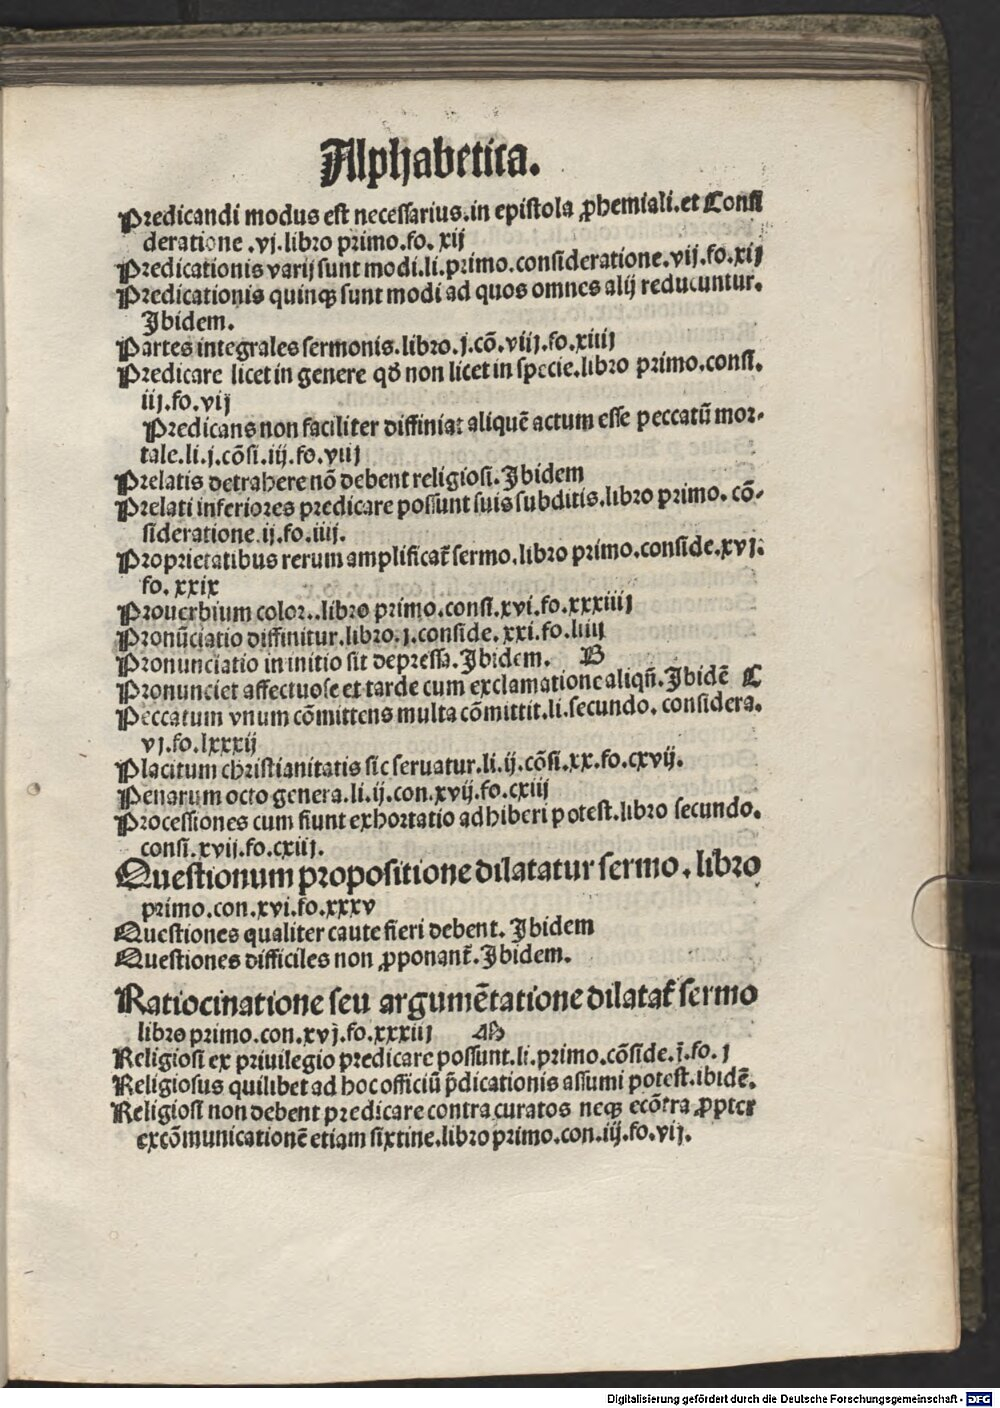 Alphabetica.
Predicandi modus est necessarius.in epistola ꝓhemiali.et Consi
deratione .vj.libro primo.fo. xij
Predicationis varij sunt modi.li.primo.consideratione.vij.fo.xij
Predicationis quinqꝫ sunt modi ad quos omnes alij reducuntur.
Ibidem.
Partes integrales sermonis.libro.j.cō.viij.fo.xiiij
Predicare licet in genere qđ non licet in specie.libro primo.consi.
iij.fo.vij
Predicans non faciliter diffiniat aliquē actum esse peccatū mor-
tale.li.j.cōsi.iij.fo.viij
Prelatis detrahere nō debent religiosi.Ibidem
Prelati inferiores predicare possunt suis subditis.libro primo. cō-
sideratione.ij.fo.iiij.
Proprietatibus rerum amplificat̄ sermo.libro primo.conside.xvj.
fo. xxix
Prouerbium color..libro primo.consi.xvi.fo.xxxiiij
Pronūciatio diffinitur.libro.j.conside.xxi.fo.liiij
Pronunciatio in initio sit depressa.Ibidem. B
Pronunciet affectuose et tarde cum exclamatione aliqn̄.Ibidē C
Peccatum vnum cōmittens multa cōmittit.li.secundo. considera.
vj.fo.lxxxij
Placitum christianitatis sic seruatur.li.ij.cōsi.xx.fo.cxvij.
Penarum octo genera.li.ij.con.xvij.fo.cxiij
Processiones cum fiunt exhortatio adhiberi potest.libro secundo.
consi.xvij.fo.cxiij.
Questionum propositione dilatatur sermo.libro
primo.con.xvi.fo.xxxv
Questiones qualiter caute fieri debent. Ibidem
Questiones difficiles non ꝓponant̄.Ibidem.
Ratiocinatione seu argumētatione dilatat̄ sermo
libro primo.con.xvj.fo.xxxiij AB
Religiosi ex priuilegio predicare possunt.li.primo.cōside.j.fo.j
Religiosus quilibet ad hoc officiū p̄dicationis assumi potest.ibidē.
Religiosi non debent predicare contra curatos neqꝫ ecōtra ꝓpter
excōmunicationē etiam sixtine.libro primo.con.iij.fo.vij.
Digitalisierung gefördert durch die Deutsche Forschungsgemeinschaft - DFG